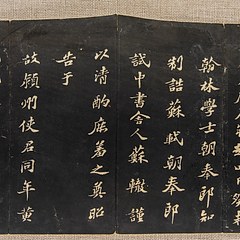 翰林學士朝奉郎知
制誥蘇軾朝奉郎
試中書舍人蘇轍謹
以清酌庶羞之奠昭
告于
故潁州使君同年黃